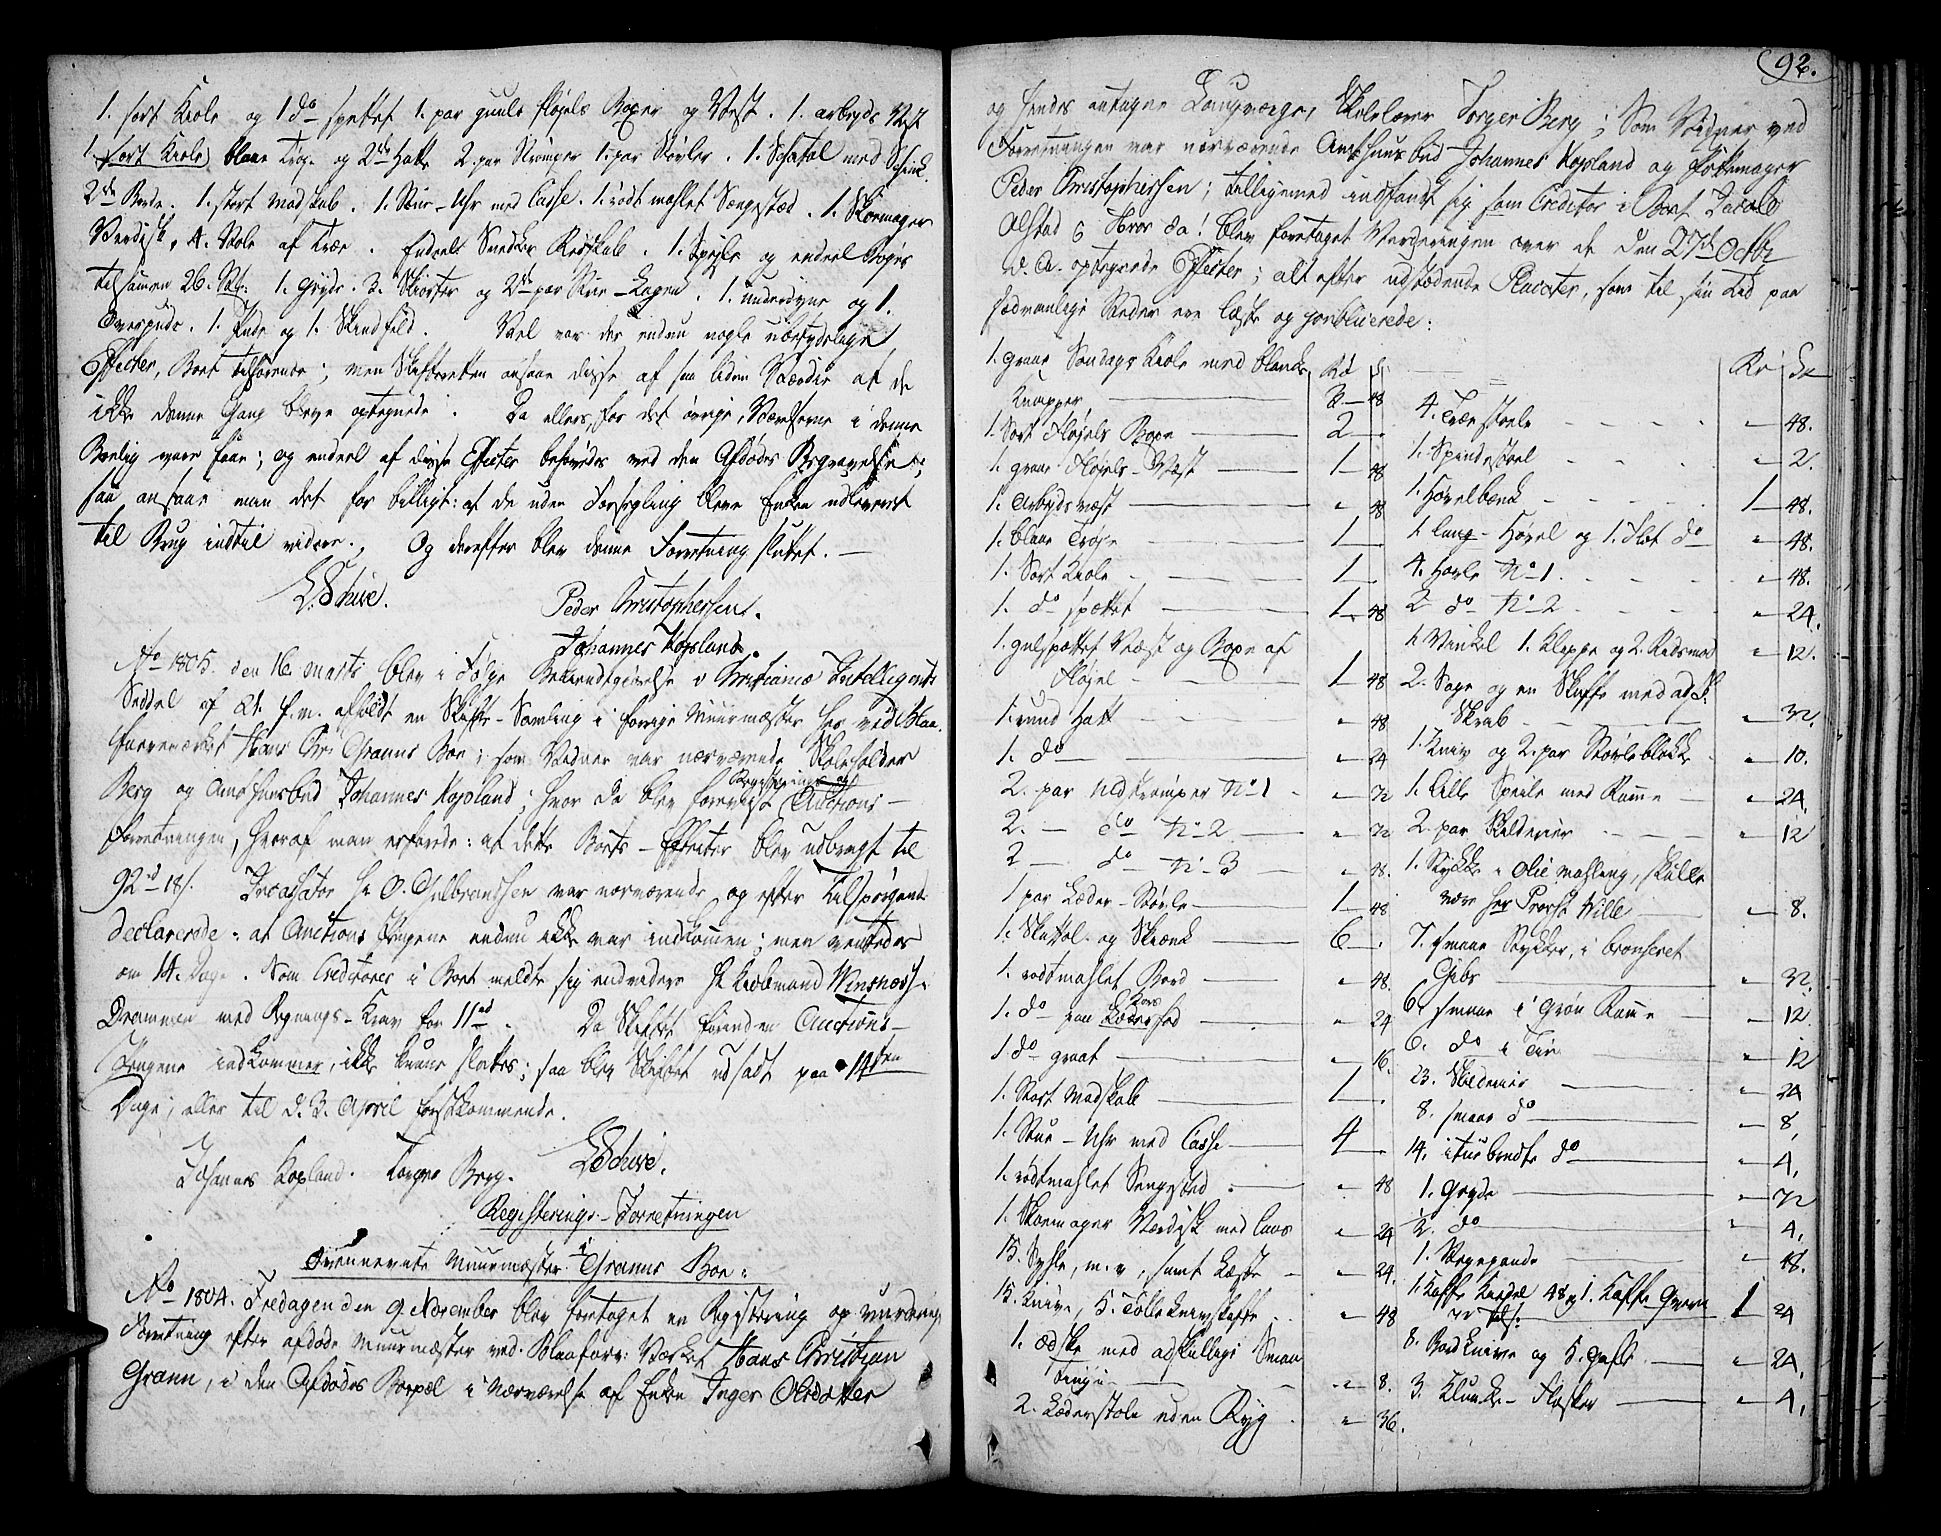 1. sort Kiole og 1 do spettet 1. par guule fløjels Boxer og Vest. 1. arbejds Vest
1 sort Kiole, blaae Trøje og 2de Hatte 2. par Strømper 1. par Støvler. 1. Schatol med Schenk.
2de Borde. 1. stort Madskab. 1. Stue-Uhr med Casse. 1. rødt mahlet Sængested. 1. Skoemager
Værdisk, 4. Stole af Træe. Endeel Snedker Redskab. 1. Spejle og endeel Bøger
tilsamen 26. Stk: 1. Gryde. 2. Skiorter og 2de par Stue-Lagen. 1. underdyne og 1.
Overpude. 1. Pude og 1. Skindfeld. Vel var der endnu nogle ubetydelige
Effecter, Boet tilhørende; men Skifteretten ansaae disse af saa liden Værdie at de
ikke denne Gang bleve optegnede. Da ellers, for det øvrige, Værelserne i denne
Boelig vare faae; og endeel af disse Effecter behøvedes ved den Afdødes Begravelse;
saa ansaae man det for billigt: at de uden Forsegling bleve Enken udleveret
til Brug indtil videre. Og derefter blev denne Forretning sluttet. —
L. Schive. Peder Christophersen.
Johannes Kopland.
Ao 1805. den 16. Marti blev i Følge Bekiendtgiørelse i Christianiæ Intelligents
Seddel af 21. f. m. afholdt en Skifte-Samling i forrige Muurmæster her ved Blaa-
farveværket Hans Chr: Granns Boe; som Vidner var nærværende Skoleholder
Berg og Amtshuusbud Johannes Kopland; hvor da blev foreviist Registerings og Auctions-
forretningen, hvoraf man erfarede: at dette Boets-Effecter blev udbragt til
92 rd 18 s. Incassator Hr O. Gulbrandsen var nærværende og efter Tilspørgende
declarerede: at Auctions Pengene endnu ikke var indkommen; men ventedes
om 14. Dage. Som Creditorer i Boet meldte sig endvidere Hr Kiøbmand Winsnæs i
Drammen med Regnings-Krav for 11 rd. Da Skiftet forinden Auctions-
Pengene indkommer, ikke kunne sluttes; saa blev Skiftet udsadt paa 14ten
Dage, eller til d. 3. April førstkommende.
Johannes Kopland. Torger Berg. L. Schive.
Registerings-Forretningen
i Ovennevnte Muurmæster Granns Boe:
Ao 1804. Fredagen den 9. November blev foretaget en Registering og vurderings
Forretning efter afdøde Muurmæster ved Blaafarve: Værket Hans Christian
Grann, i den Afdødes Bopæl i Nærværelse af Enken Inger Olsdatter
92.
og hendes antagne Laugværge, Skolelærer Torger Berg; Som Vidner ved
Forretningen var nærværende Amtshuusbud Johannes Kopland og Pottemager
Peder Christophersen; tilligemed indfandt sig som Creditor i Boet Jacob
Alstad; Hvor da! blev foretaget Vurderingen over de den 27de Octbr
d. A. optegnede Effecter; alt efter udstædende Placater, som til sin Tid paa
sædvanlige Steder ere læste og publicerede:
1. graae Søndags Kiole med blanke Rd s
Knapper — 3 — 48
1. Sort Fløjels Boxe — 2 — .
1. graae Fløjels-Vest — 1 — 48
1. Arbejdsvæst — „ 48
1. blaae Trøje — 1 —
1. Sort Kiole — 1 —
1. do spættet — 1 — 48
1. gulspættet Væst og Boxe af
Fløjel — 1 — 48
1. rund Hatt — „ 48
1. do — „ 24
2. par Uldstrømper No 1 — „ 72
2. — do No 2 — „ 72
2 — do No 3 — „ 48.
1 par Læder-Støvle — 1 — 48
1. Skattol og Skienk — 6 — .
1. rødtmahlet Bord — „ 48.
1. do paa Kors — „ 24
1 do graat — „ 16.
1. Stort Madskab — 1 — .
1. Stue-Uhr med Casse — 4 —
1. rødtmahlet Sengested — „ 48
1. Skoemager Værdisk med Laas „ 24
15. Syhle, m. v; samt Læste — „ 24.
15. Knive, 5. Tolleknivskafte — „ 48
1. Ædske med adskillige Smaa
Tinge — „ 8.
2. Læderstole uden Ryg — „ 36.
Rd Sk
4. Træestoele — „ 48.
1. Spindestoel — „ 2.
1. Høvelbænk — 1 — 48.
1. lang-Høvel og 1. Slet do — „ 48.
4. Høvle No 1. — „ 48.
2 do No 2 — „ 24.
1. Vinkel 1. Kloppe og 2. Ridsmod „ 12.
2. Sage og en Skuffe med adsk:
Skrab — „ 32.
1. Kniv og 2. par Støvleblokke „ 10.
1. Lille Speile med Ramme — „ 24.
2. par Skilderier — „ 12
1. Stykke i Olie Mahling, skulle
være her Provst Wille — „ 8.
7. smaae Stykker, i bronseret
Gibs — „ 32.
6. smaae i Grøn Ramme — „ 12
6. do i Tin — „ 12
23. Skilderier — „ 24
8. smaae do — „ 8,
14. ituebrudte do — „ 4,
1. Gryde — „ 72
2. do — „ 4,
1. Stegepande — „ 48.
1. Kaffe Kiedel 48 s 1. Kaffe Qværn
72 tils: — 1 24
8. Bordknive og 5. Gafle — „ 24,
3. Klunke-Flasker — „ 4,